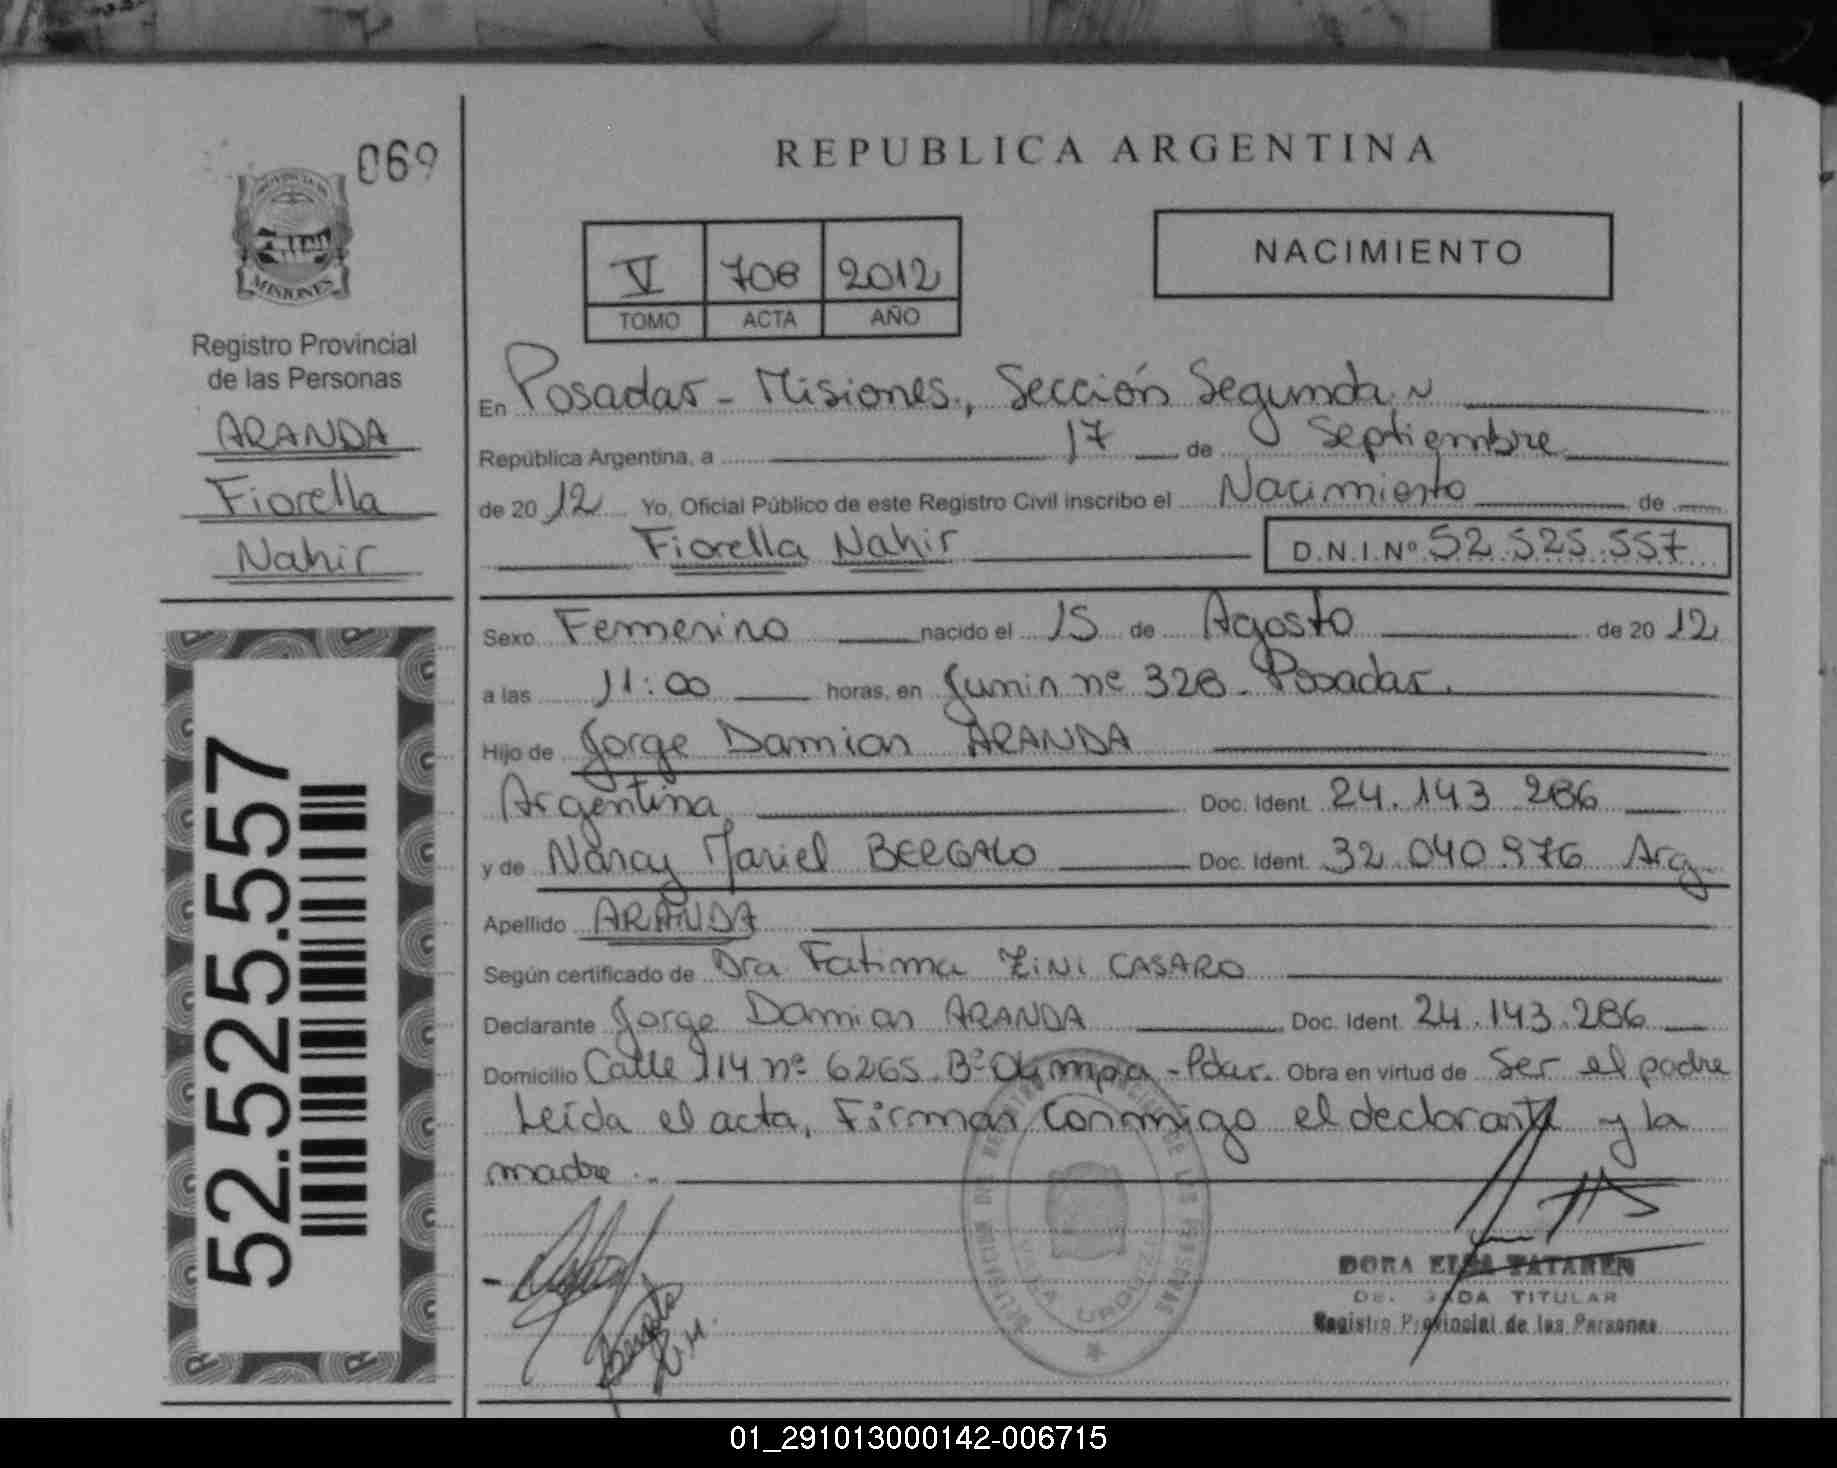 069
PROVINCIA DE
MISIONES
Registro Provincial
de las Personas
ARANDA
Fiorella
Nahir
52.525.557
REPUBLICA ARGENTINA
V 708 2012
TOMO ACTA AÑO
NACIMIENTO
En Posadas - Misiones, Sección Segunda
República Argentina, a 17 de Septiembre
de 2012 Yo, Oficial Público de este Registro Civil inscribo el Nacimiento de
Fiorella Nahir D.N.I.Nº 52.525.557
Sexo Femenino nacido el 15 de Agosto de 2012
a las 11:00 horas, en Junin nº 328 - Posadas.
Hijo de Jorge Damian ARANDA
Argentina Doc. Ident. 24.143.286
y de Nancy Mariel BERGALO Doc. Ident. 32.040.976 Arg
Apellido ARANDA
Según certificado de Dra Fatima ZINI CASARO
Declarante Jorge Damian ARANDA Doc. Ident. 24.143.286
Domicilio Calle 114 nº 6265 Bº Olimpia - Pdas. Obra en virtud de Ser el padre
Leída el acta, Firman conmigo el declarante y la
madre.
DORA ELSA TATAREN
TITULAR
Registro Provincial de las Personas
01_291013000142-006715